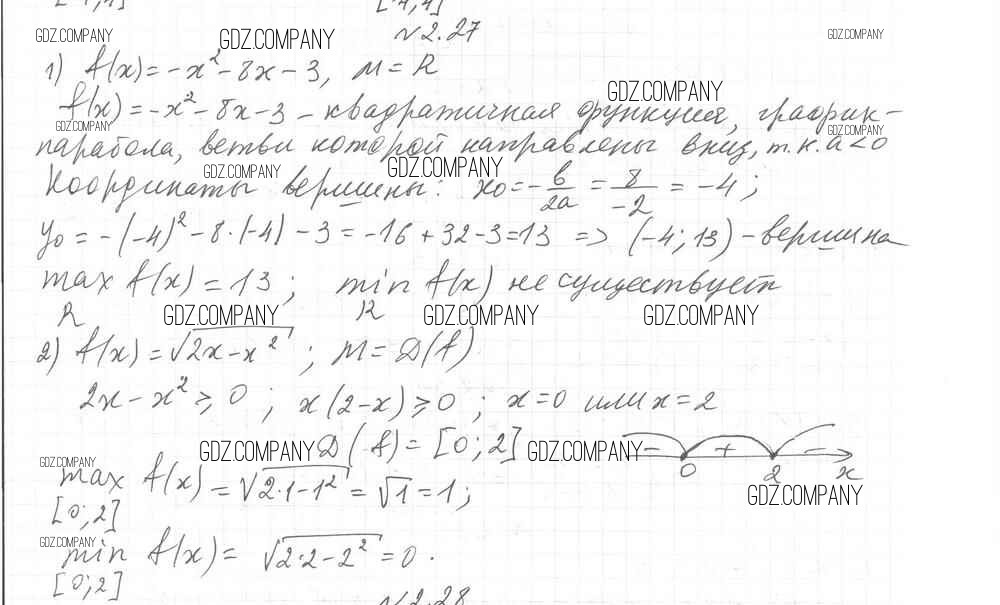 [-4;4]
N2.27
GDZ.COMPANY GDZ.COMPANY GDZ.COMPANY
1) f(x)=-x²-8x-3, M=R
GDZ.COMPANY
f(x)=-x²-8x-3 - квадратичная функция, график-
GDZ.COMPANY GDZ.COMPANY
парабола, ветви которой направлены вниз, т.к. a<0
GDZ.COMPANY GDZ.COMPANY
Координаты вершины: x₀=-b/2a=8/-2=-4;
y₀=-(-4)²-8·(-4)-3=-16+32-3=13 => (-4;13)-вершина
max f(x)=13; min f(x) не существует
R R
GDZ.COMPANY GDZ.COMPANY GDZ.COMPANY
2) f(x)=√2x-x²; M=D(f)
2x-x²≥0; x(2-x)≥0; x=0 или x=2
GDZ.COMPANY D(f)=[0;2] GDZ.COMPANY - + -
0 2 x
GDZ.COMPANY
max f(x)=√2·1-1²=√1=1;
[0;2]
GDZ.COMPANY
GDZ.COMPANY
min f(x)=√2·2-2²=0.
[0;2]
N2.28